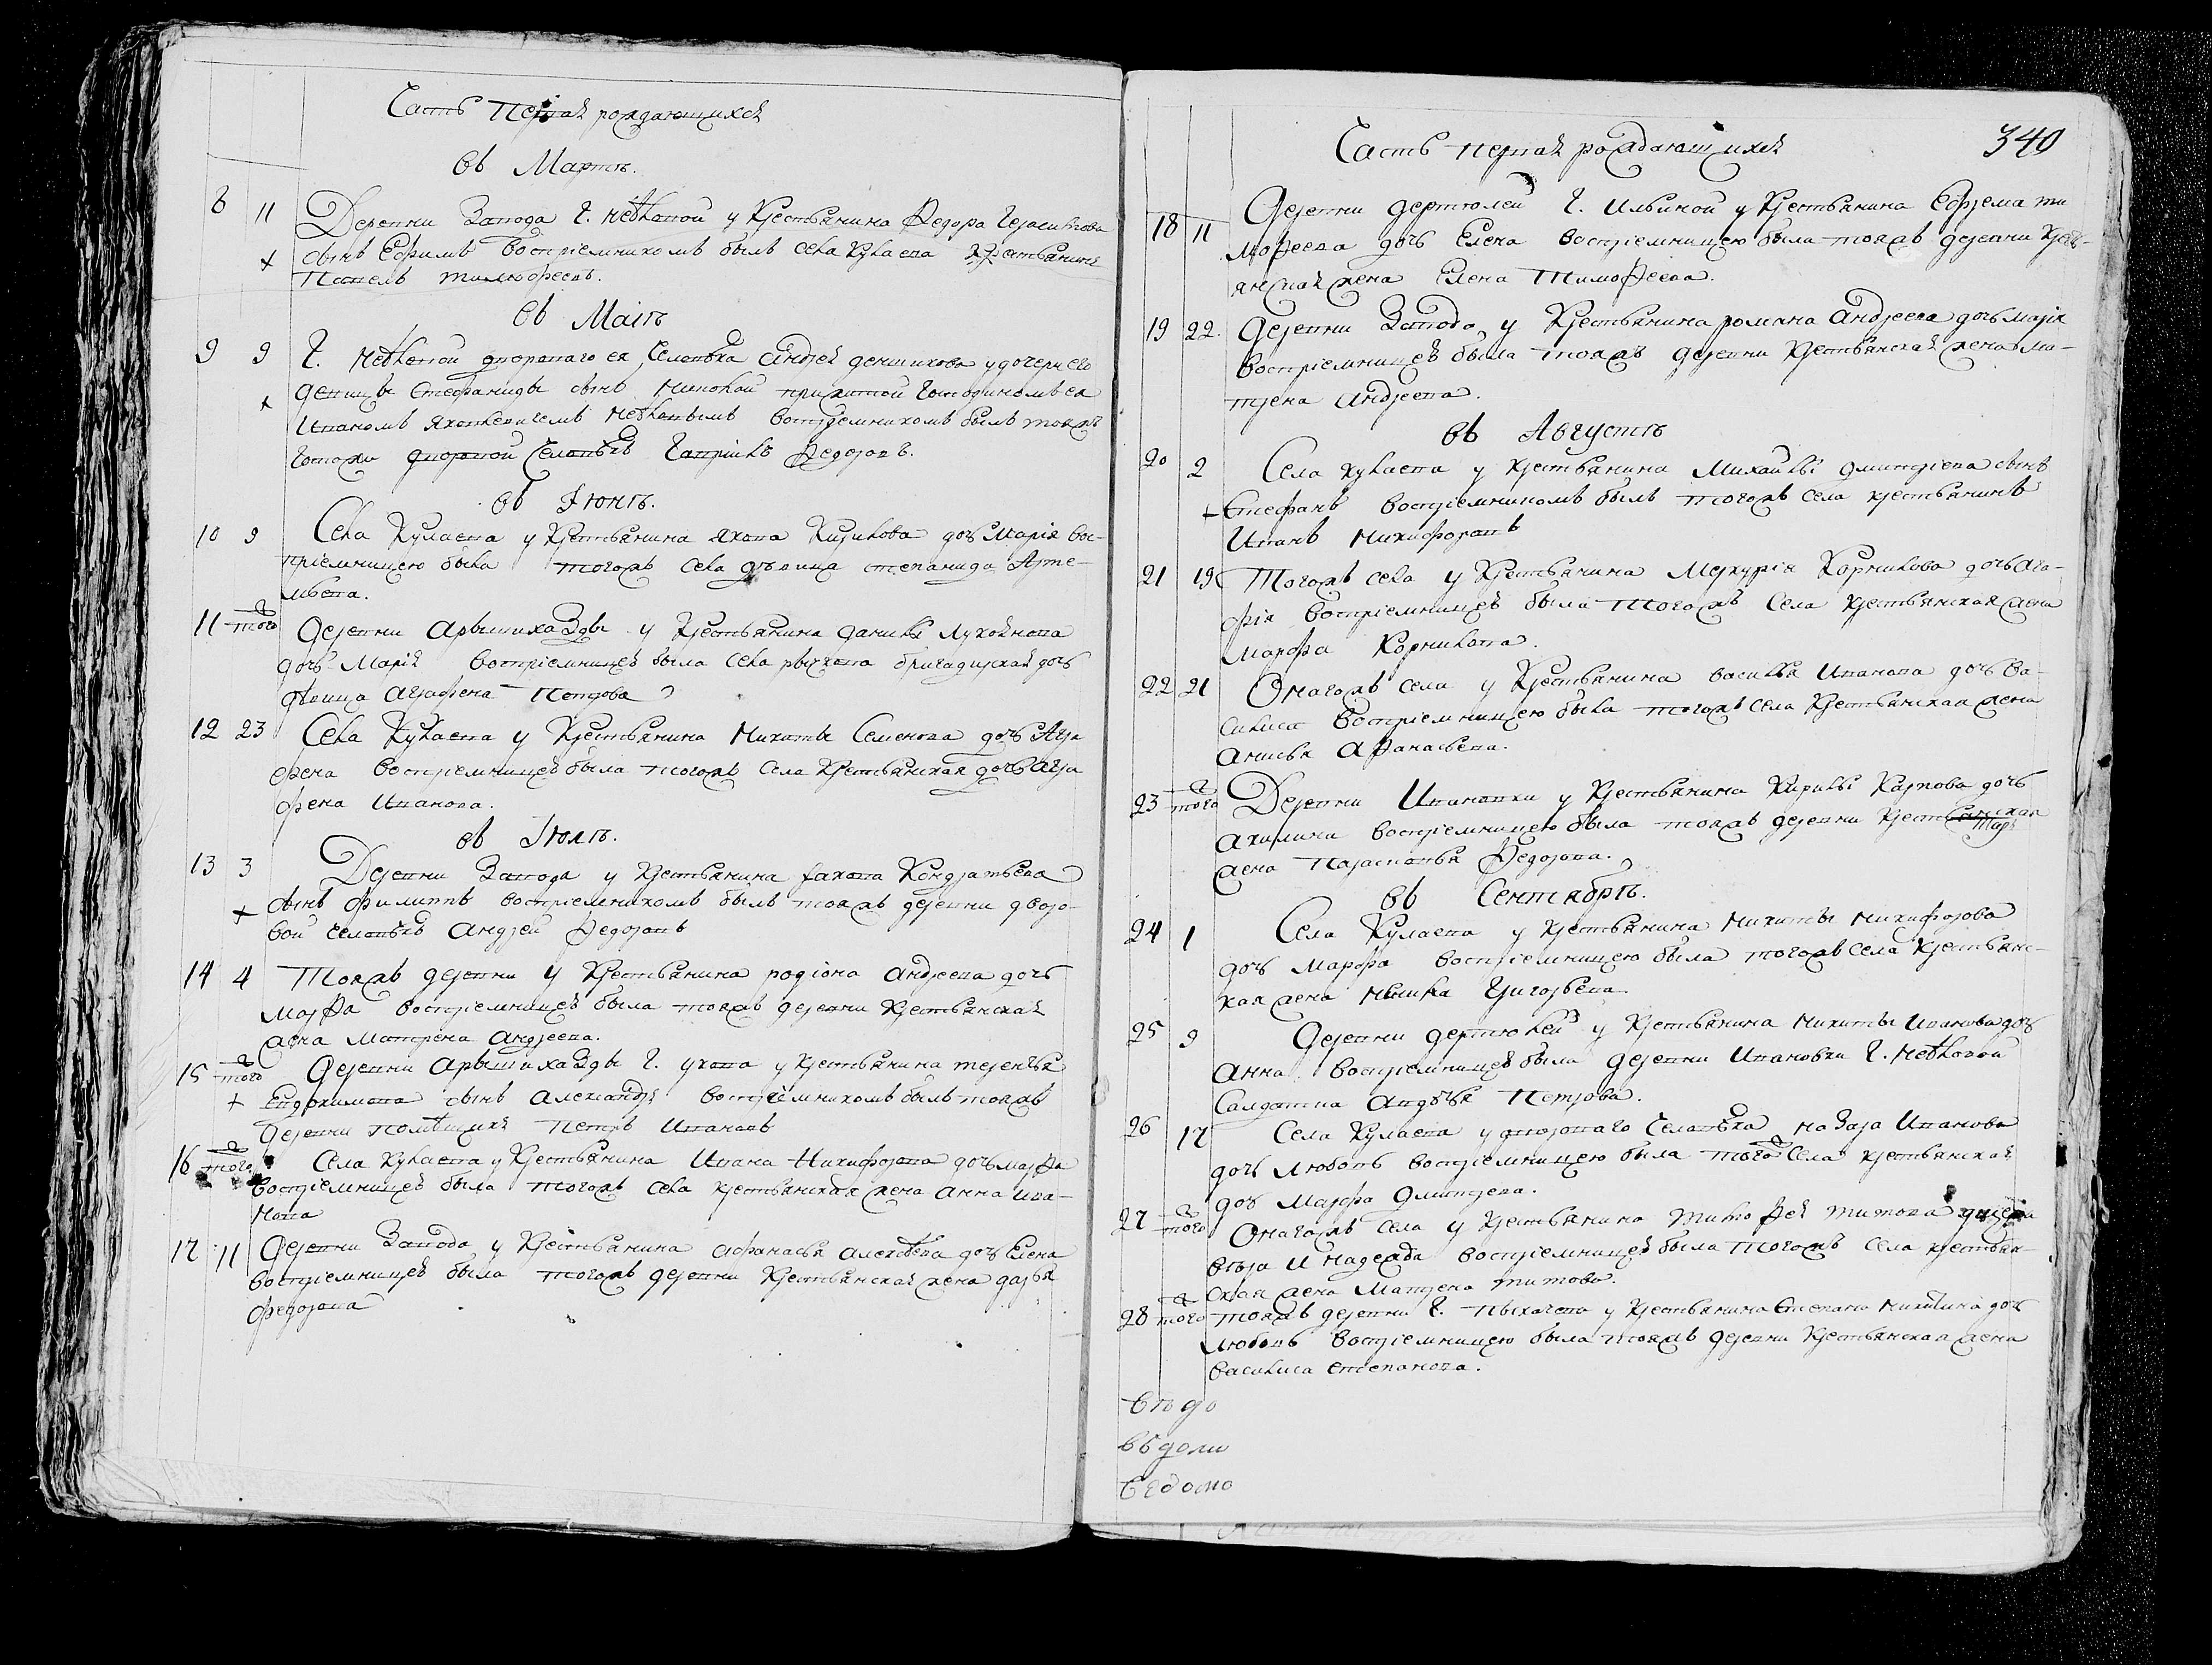 Часть первая рождающихся
въ Мартѣ.
8 11 Деревни Завода Г. Неѣловой у крестьянина Федора Герасимова
сынъ Ефимъ воспріемникомъ былъ села Кулаева крестьянинъ
Павелъ Тимофеевъ.
въ Маіѣ
9 9 Г. Неѣловой двороваго ея человѣка Андрея у дочери его
девицы Стефаниды сынъ прижитой господиномъ ея
Иваномъ Яковлевичемъ Неѣловымъ воспріемникомъ былъ тояжъ
госпожи дворовой человѣкъ Гавріилъ Федоровъ.
въ Іюнѣ.
10 9 Села Кулаева у крестьянина Якова Кирилова дочь Марія вос-
пріемницею была тогожъ села дѣвица Степанида Арте-
мьева.
11 того Деревни Арышихазды у крестьянина Данилы
дочь Марія воспріемницею была села бригадирская дочь
дѣвица Аграфена Петрова
12 23 Села Кулаева у крестьянина Никиты Семенова дочь Агра
фена воспріемницею была тогожъ села крестьянская дочь Агра
фена Иванова.
въ Іюлѣ.
13 3 Деревни Завода у крестьянина Іакова Кондратьева
сынъ Филиппъ воспріемникомъ былъ тояжъ деревни дворо-
вой человѣкъ Андрей Федоровъ
14 4 Тояжъ деревни у крестьянина Родіона Андреева дочь
Марфа воспріемницею была тояжъ деревни крестьянская
жена Матрена Андреева.
15 того Деревни Арышихазды Г. у крестьянина Терентья
Евдокимова сынъ Александръ воспріемникомъ былъ тояжъ
деревни помѣщикъ Петръ Ивановъ
16 того Села Кулаева у крестьянина Ивана Никифорова дочь Марфа
воспріемницею была тогожъ села крестьянская жена Анна Ива-
нова
17 11 Деревни Завода у крестьянина Афанасья Алексѣева дочь Елена
воспріемницею была тогожъ деревни крестьянская жена Дарья
Федорова
340
Часть первая рождающихся
18 11 Деревни Дертюлей Г. Ильиной у крестьянина Ефрема Ти
мофеева дочь Елена воспріемницею была тояжъ деревни крест-
янская жена Елена Тимофеева.
19 22. Деревни Завода у крестьянина Романа Андреева дочь Марія
воспріемницею была тояжъ деревни крестьянская жена Ма-
трена Андреева.
въ Августѣ
20 2 Села Кулаева у крестьянина Михайлы Дмитріева сынъ
Стефанъ воспріемникомъ былъ тогожъ села крестьянинъ
Иванъ Никифоровъ
21 19 Тогожъ села у крестьянина Меркурія Корнилова дочь Ага-
фія воспріемницею была тогожъ села крестьянская жена
Марфа Корнилова.
22 21 Онагожъ села у крестьянина Василья Иванова дочь Ва-
силиса воспріемницею была тогожъ села крестьянская жена
Анисья Афанасьева.
23 того Деревни Ивановки у крестьянина Кирилы Карпова дочь
Акилина воспріемницею была тояжъ деревни крестьянская
жена Парасковья Федорова.
въ Сентябрѣ.
24 1 Села Кулаева у крестьянина Никиты Никифорова
дочь Марфа воспріемницею была тогожъ села крестьянс-
кая жена Григорьева
25 9 Деревни Дертюлей у крестьянина Никиты Иванова дочь
Анна воспріемницею была деревни Ивановки Г. Неѣловой
салдатка Авдотья Петрова.
26 17 Села Кулаева у двороваго человѣка Назара Иванова
дочь Любовь воспріемницею была тогожъ села крестьянская
дочь Марфа Дмитрева.
27 того Онагожъ села у крестьянина Тимофея Титова дщери
Вѣра и Надежда воспріемницею была тогожъ села крестьян-
ская жена Матрена Титова.
28 того Тояжъ деревни Г. у крестьянина Степана Никитина дочь
Любовь воспріемницею была тояжъ деревни крестьянская жена
Василиса Степанова.
Ведомо